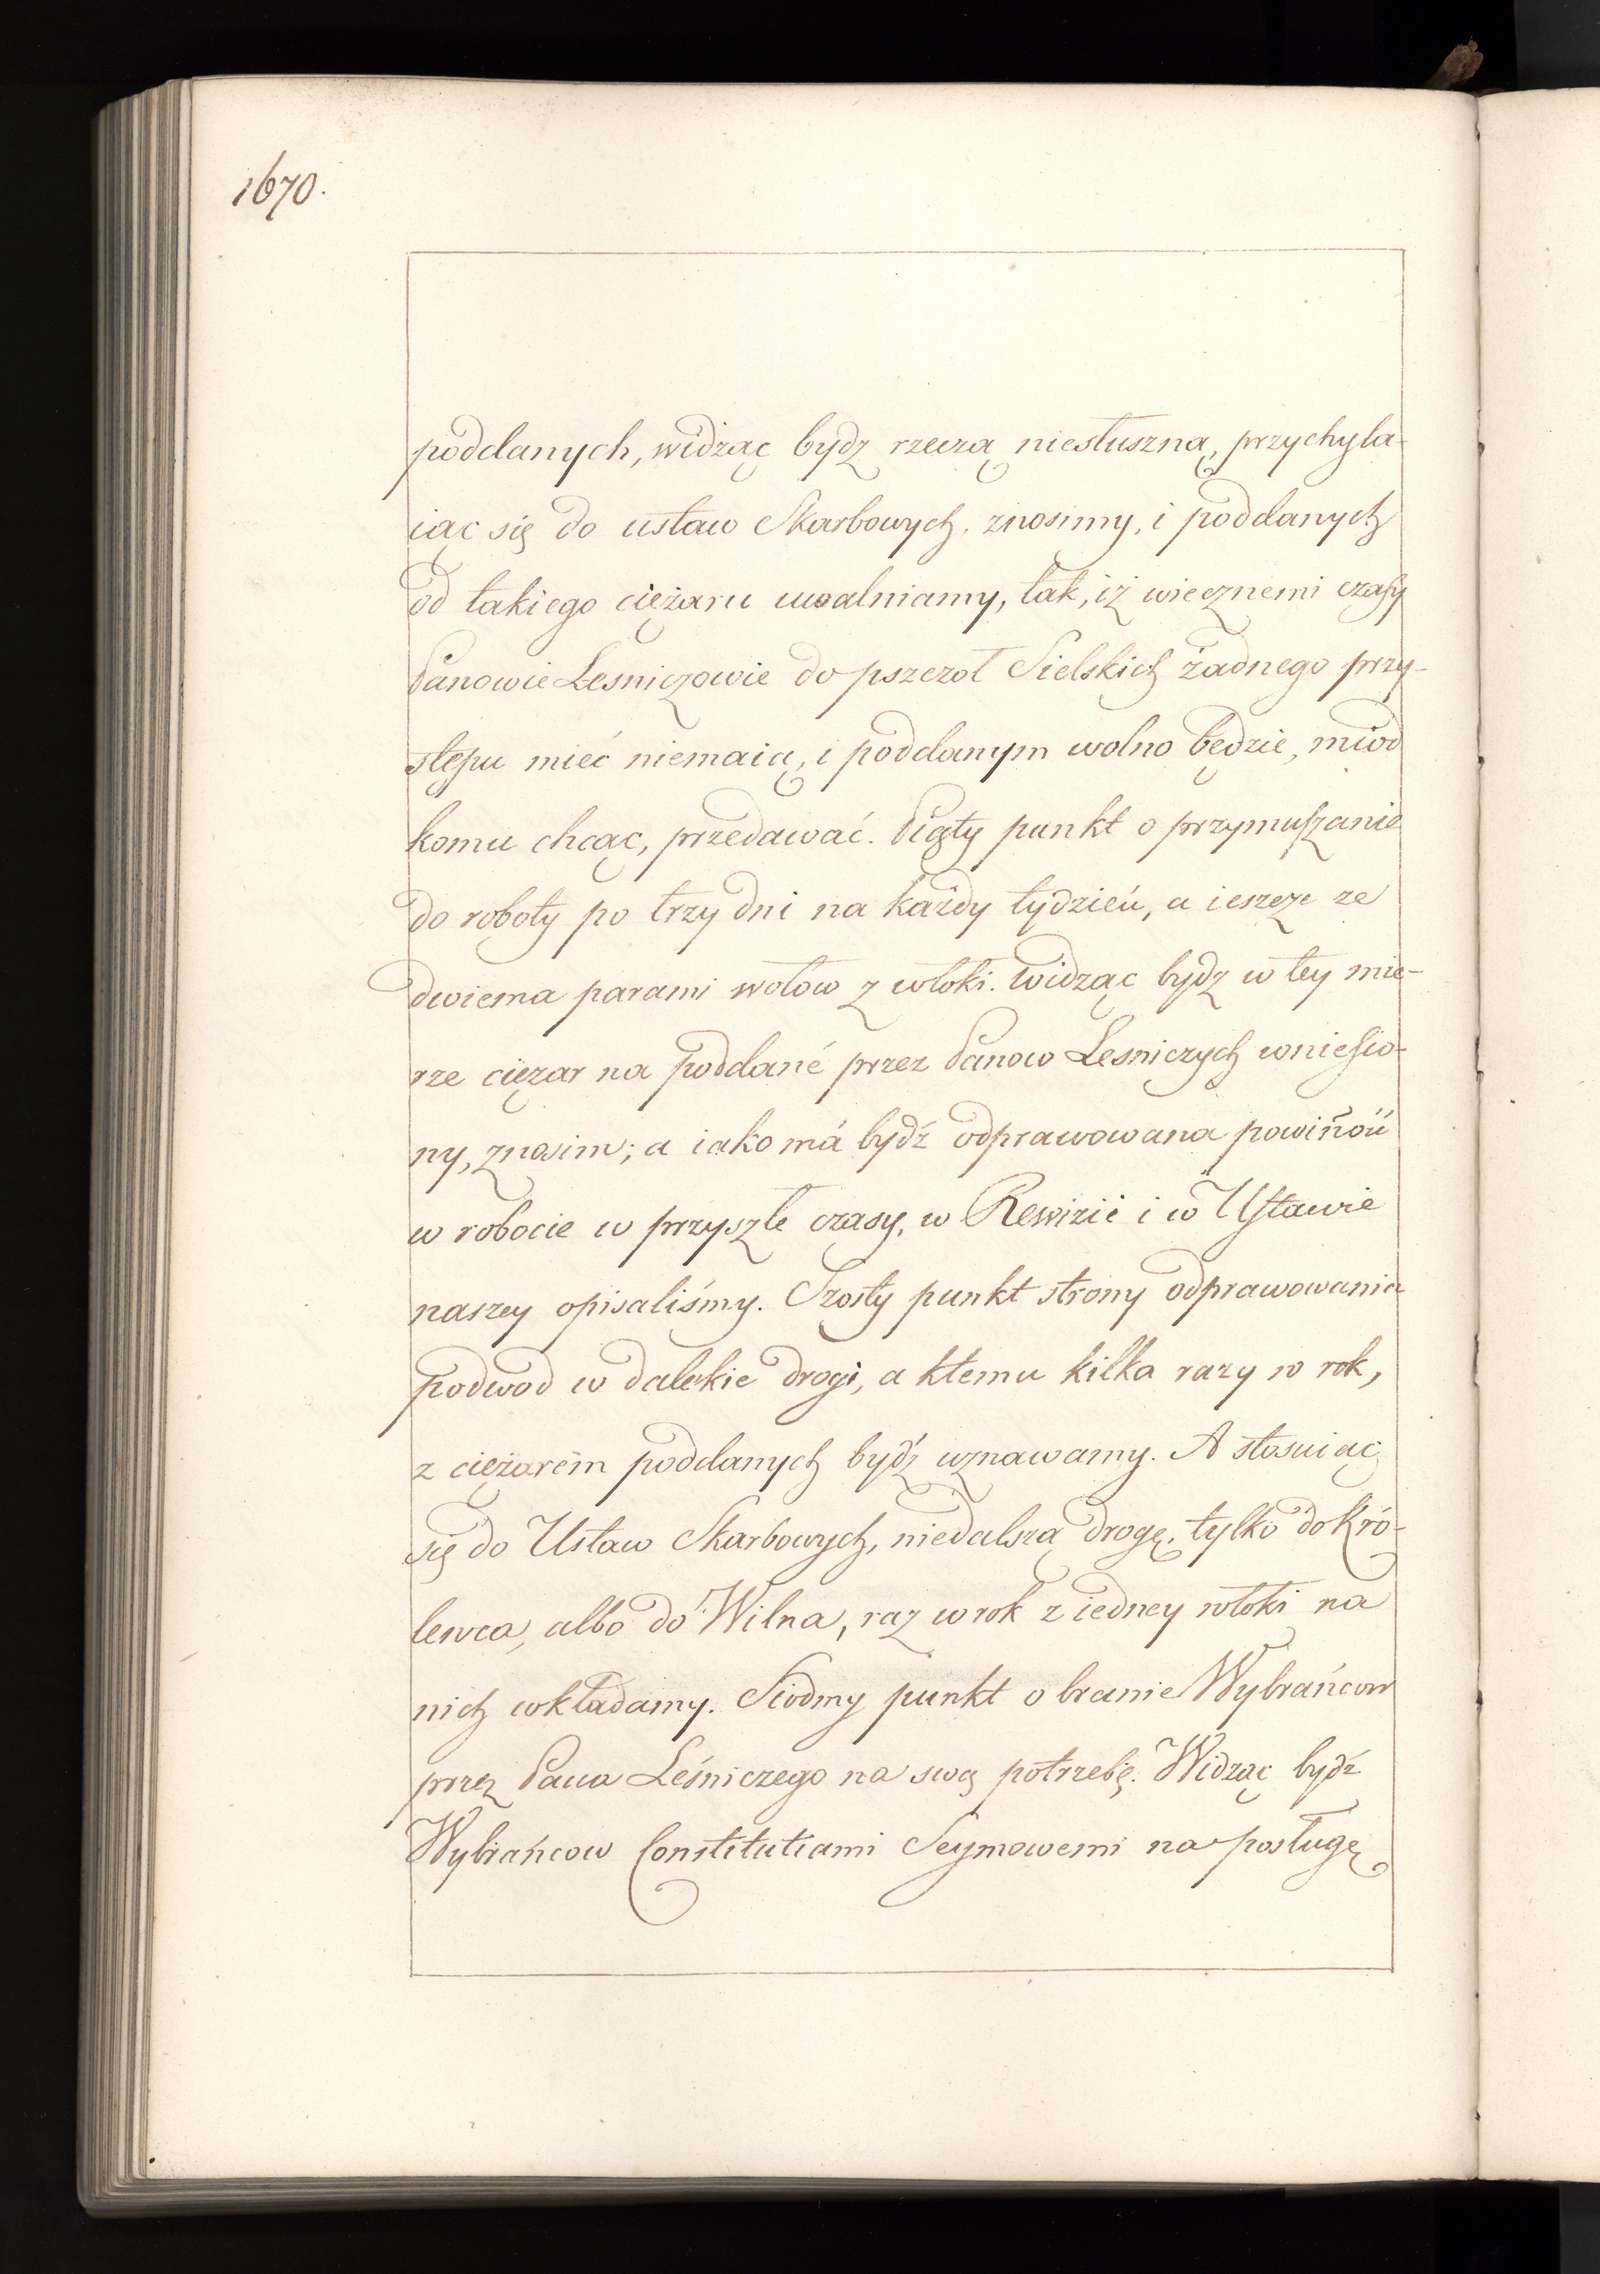 1670.
poddanych, widząc bydz rzeczą niesłuszną, przychyla-
iąc się do ustaw Skarbowych. znosimy, i poddanych
od takiego ciężaru uwalniamy, tak, iż wiecznemi czasy
Panowie Lesniczowie do pszczoł Sielskich żadnego przy-
stępu mieć niemaią, i poddanym wolno będzie, miod
komu chcąc, przedawać. Piąty punkt o przymuszanie
do roboty po trzy dni na każdy tydzień, a ieszcze ze
dwiema parami wołow z włoki. widząc bydz w tey mie-
rze ciężar na poddané przez Panow Lesniczych wniesio-
ny, znosim; a iako má bydź odprawowana powiñoú
w robocie w przyszłe czasy, w Rewizii i w Ustawie
naszey opisaliśmy. Szosty punkt strony odprawowania
podwod w dalekie drogi, a ktemu kilka razy w rok,
z ciężarem poddanych bydź uznawamy. A stosuiąc
się do Ustaw Skarbowych, niedalszą drogę, tylko do Kró-
lewca, albo do Wilna, raz w rok z iedney włoki na
nich wkładamy. Siodmy punkt o branie Wybrańcow
przez Pana Leśniczego na swą potrzebę. Widząc bydź
Wybrańcow Constitutiami Seymowemi na posługę